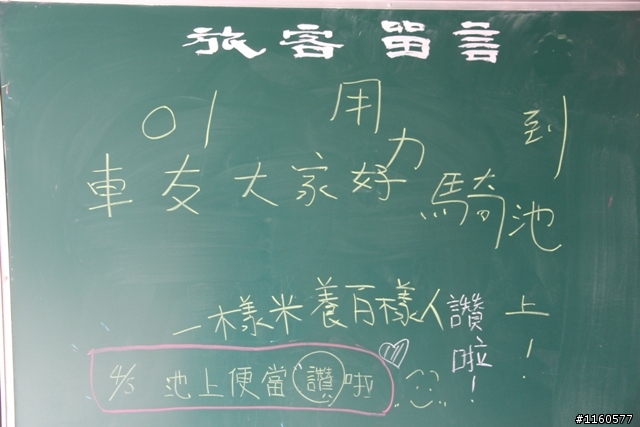 旅客留言
01
車友大家好
用力騎
到池上!
一樣米養百樣人
讚啦!
4/5 池上便當 讚 啦
#1160577